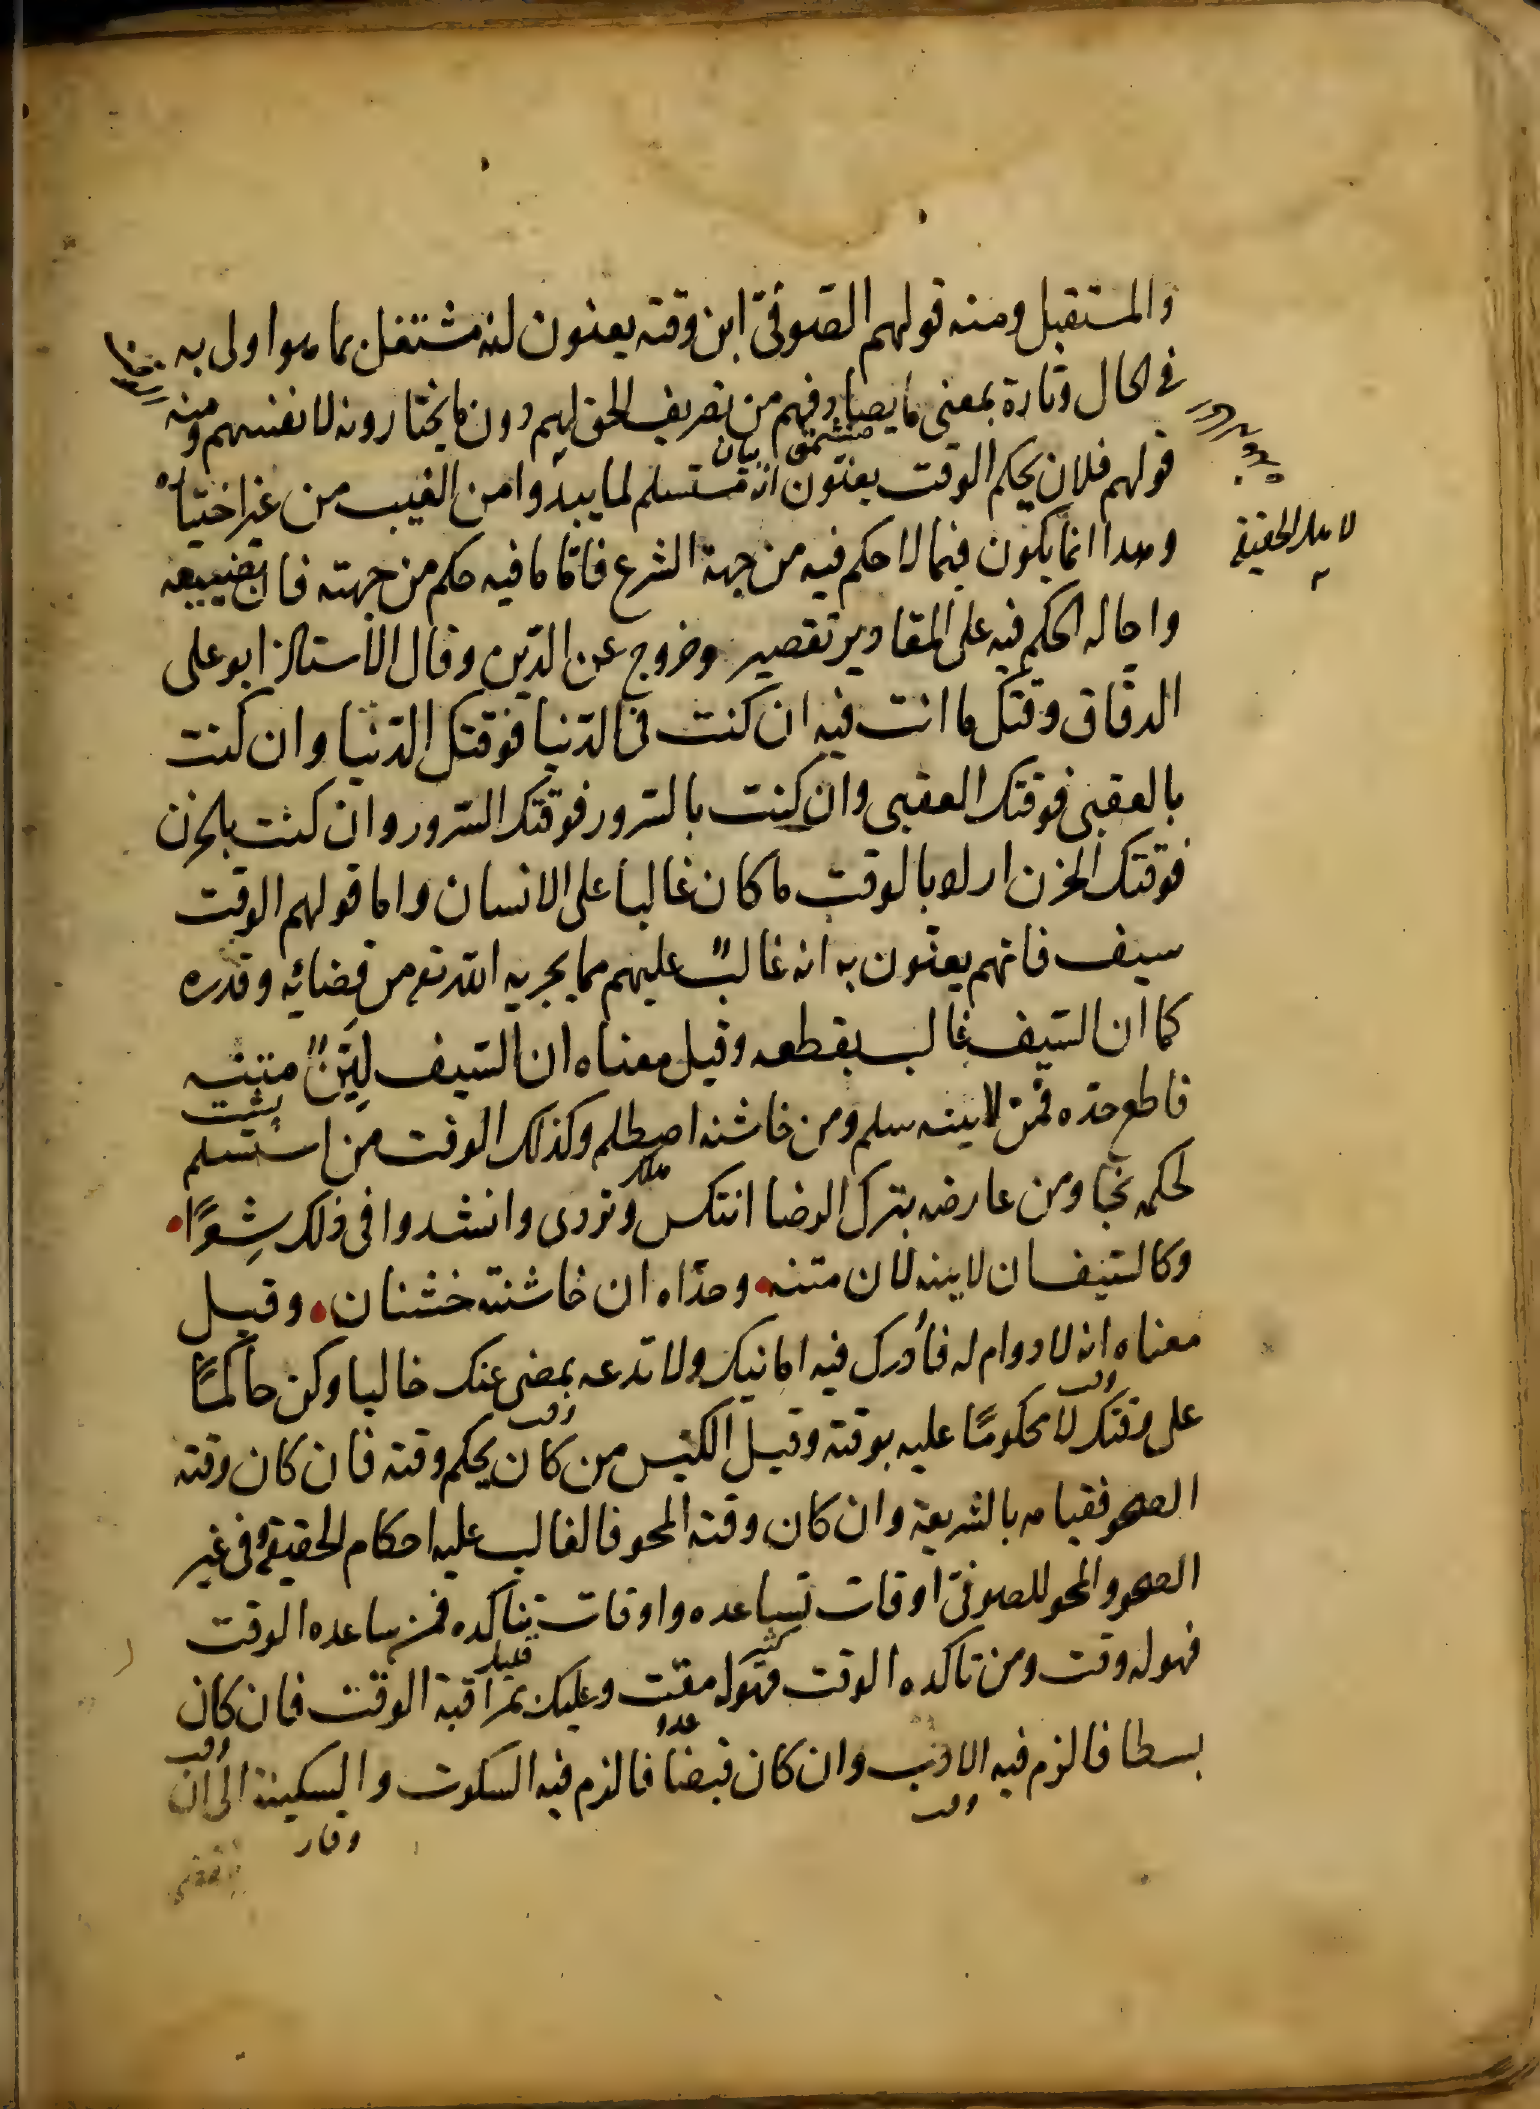 والمستقبل ومنه قولهم الصّوفىّ ابن وقته يعنون انه مشتغل بما هو اولى به
فى الحال وتارة بمعنى ما يصادفهم من تصريف الحق لهم دون ما يختارونه لانفسهم ومنه
قولهم فلان بحكم الوقت يعنون انه مستسلم لما يبدوا من الغيب من غير اختياره
وهذا انما يكون فيما لا حكم فيه من جهة الشرع فامّا ما فيه حكم من جهته فاتضييعه
واحاله الحكم فيه على المقادير تقصير وخروج عن الدّين وقال الاستاذ ابو على
الدقّاق وقتك ما انت فيه ان كنت فى الدّنيا فوقتك الدّنيا وان كنت
بالعقبى فوقتك العقبى وان كنت بالسّرور فوقتك السّرور وان كنت بالحزن
فوقتك الحزن اراد بالوقت ما كان غالبا على الانسان واما قولهم الوقت
سيف فانهم يعنون به انه غالبٌ عليهم مما يجريه الله تع من قضائه وقدره
كما ان السّيف غالب بقطعه وقيل معناه ان السّيف ليّنٌ متنه
قاطع حدّه فمن لاينه سلم ومن خاشنه اصطلم وكذلك الوقت من استسلم
لحكمه نجا ومن عارضه بترك الرضا انتكس وتردى وانشدوا فى ذلك شِعرًا
وكالسّيف ان لاينه لان متنه وحدّاه ان خاشنته خشنان وقيل
معناه انه لا دوام له فأدرك فيه امانيك ولا تدعه يمضى عنك خاليا وكن حاكمًا
على وقتك لا محكومًا عليه بوقته وقيل الكيّس من كان بحكم وقته فان كان وقته
الصحو فقيامه بالشريعة وان كان وقته المحو فالغالب عليه احكام الحقيقة وفى غير
الصحو والمحو للصوفىّ اوقات تساعده واوقات تناكده فمن ساعده الوقت
فهو له وقت ومن ناكده الوقت فهو له مقت وعليك بمراقبة الوقت فان كان
بسطا فالزم فيه الادب وان كان قبضا فالزم فيه السكوت والسكينة الى ان
وقار